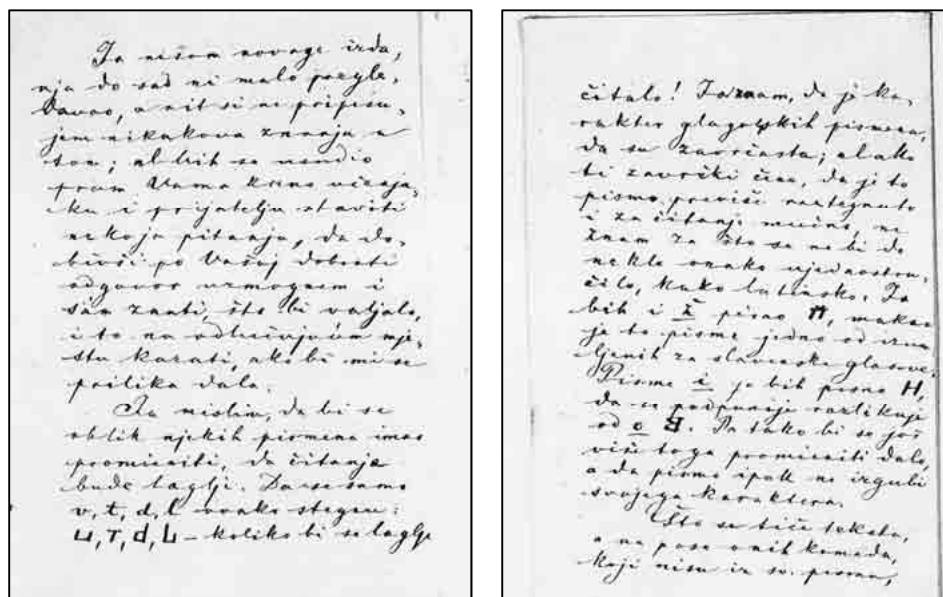 Ja nisam novoga izda,
nja do sad ni malo pregle,
davao, a nit si ne pripisu,
jem nikakova znanja u
tom; al bih se usudio
pram Vama kano učenja,
ku i prijatelju staviti
nekoja pitanja, da do,
bivši po Vašoj dobroti
odgovor uzmognem i
sam znati, što bi valjalo,
i to na odlučujućem mje,
stu kazati, ako bi mi se
prilika dala.
Ja mislim, da bi se
oblik njekih pismena imao
promieniti, da čitanje
bude laglje. Da se samo
v, t, d, l ovako stegnu:
ш, т, d, L – koliko bi se laglje
čitalo! Ja znam, da je ka,
rakter glagolskih pismena,
da su zavrčasta; al ako
ti zavrčki čine, da je to
pismo previše raztegnuto
i za čitanje mučno, ne
znam za što se ne bi do
nekle onako ujednostru,
čilo, kako latinsko. Ja
bih i ž pisao, makar
je to pisme jedno od izum
ljenih za slavenske glasove.
Pisme i ja bih pisao
da se podpunije razlikuje
od o. Pa tako bi se još
više toga promieniti dalo,
a da pismo ipak ne izgubi
svojega karaktera.
Što se tiče teksta,
a na pose onih komada,
koji nisu iz sv. pisma,